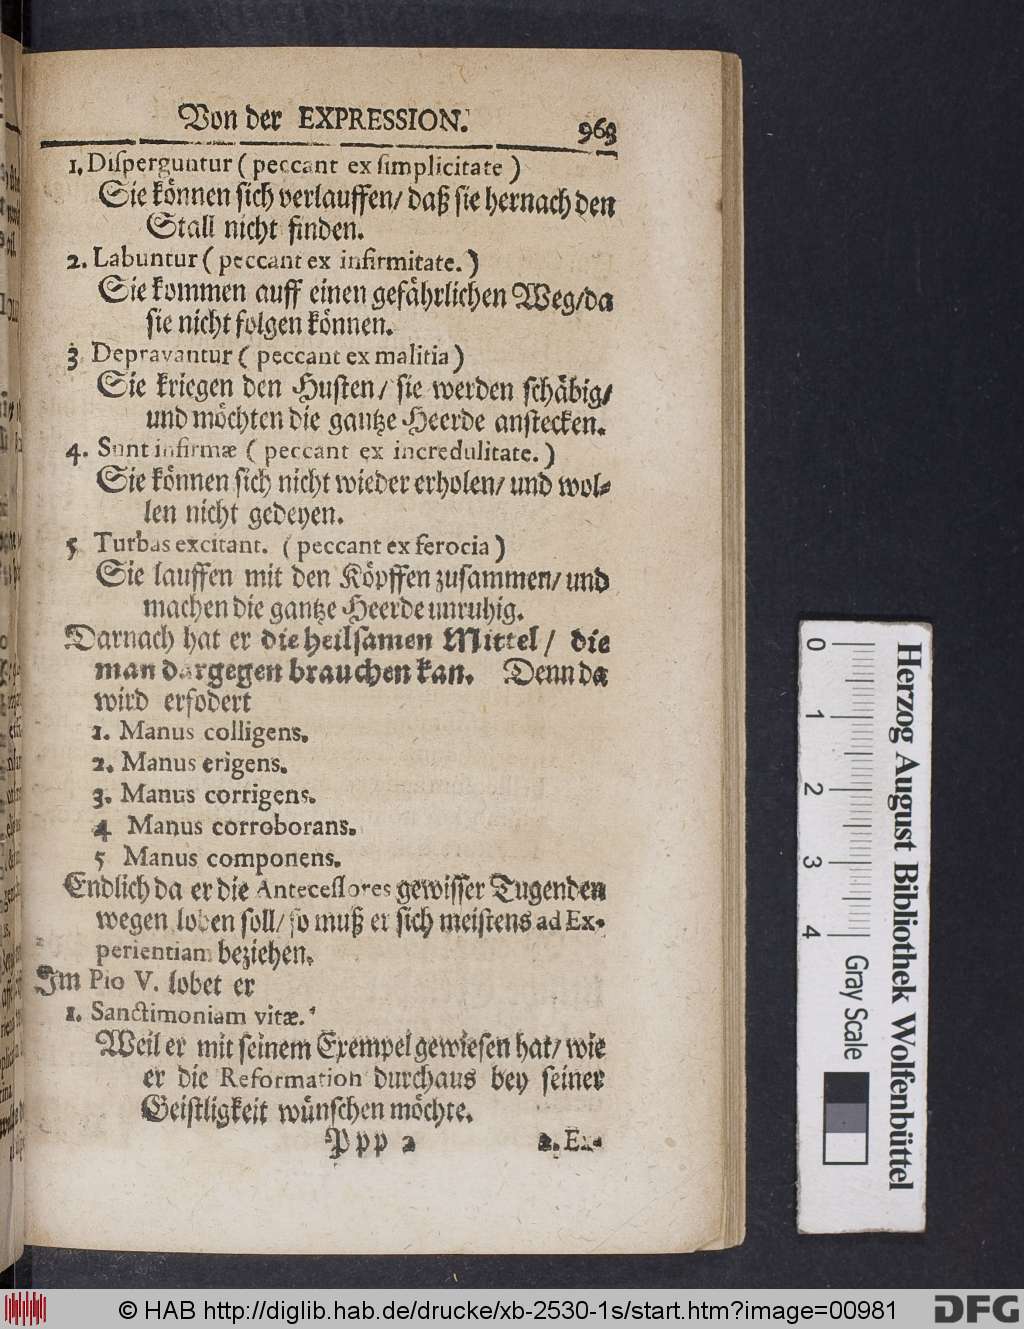 Von der EXPRESSION. 963
1. Disperguntur ( peccant ex simplicitate )
Sie können sich verlauffen/ daß sie hernach den
Stall nicht finden.
2. Labuntur ( peccant ex infirmitate. )
Sie kommen auff einen gefährlichen Weg/da
sie nicht folgen können.
3 Depravantur ( peccant ex malitia )
Sie kriegen den Husten/ sie werden schäbig/
und möchten die gantze Heerde anstecken.
4. Sunt infirmæ ( peccant ex incredulitate. )
Sie können sich nicht wieder erholen/ und wol-
len nicht gedeyen.
5 Turbas excitant. ( peccant ex ferocia )
Sie lauffen mit den Köpffen zusammen/ und
machen die gantze Heerde unruhig.
Darnach hat er die heilsamen Mittel/ die
man dargegen brauchen kan. Denn da
wird erfodert
1. Manus colligens.
2. Manus erigens.
3. Manus corrigens.
4 Manus corroborans.
5 Manus componens.
Endlich da er die Antecessores gewisser Tugenden
wegen loben soll/ so muß er sich meistens ad Ex-
perientiam beziehen.
Im Pio V. lobet er
1. Sanctimoniam vitæ.
Weil er mit seinem Exempel gewiesen hat/ wie
er die Reformation durchaus bey seiner
Geistligkeit wünschen möchte.
Ppp 2 2. Ex-
0 1 2 3 4
Herzog August Bibliothek Wolfenbüttel
Gray Scale
© HAB http://diglib.hab.de/drucke/xb-2530-1s/start.htm?image=00981
DFG